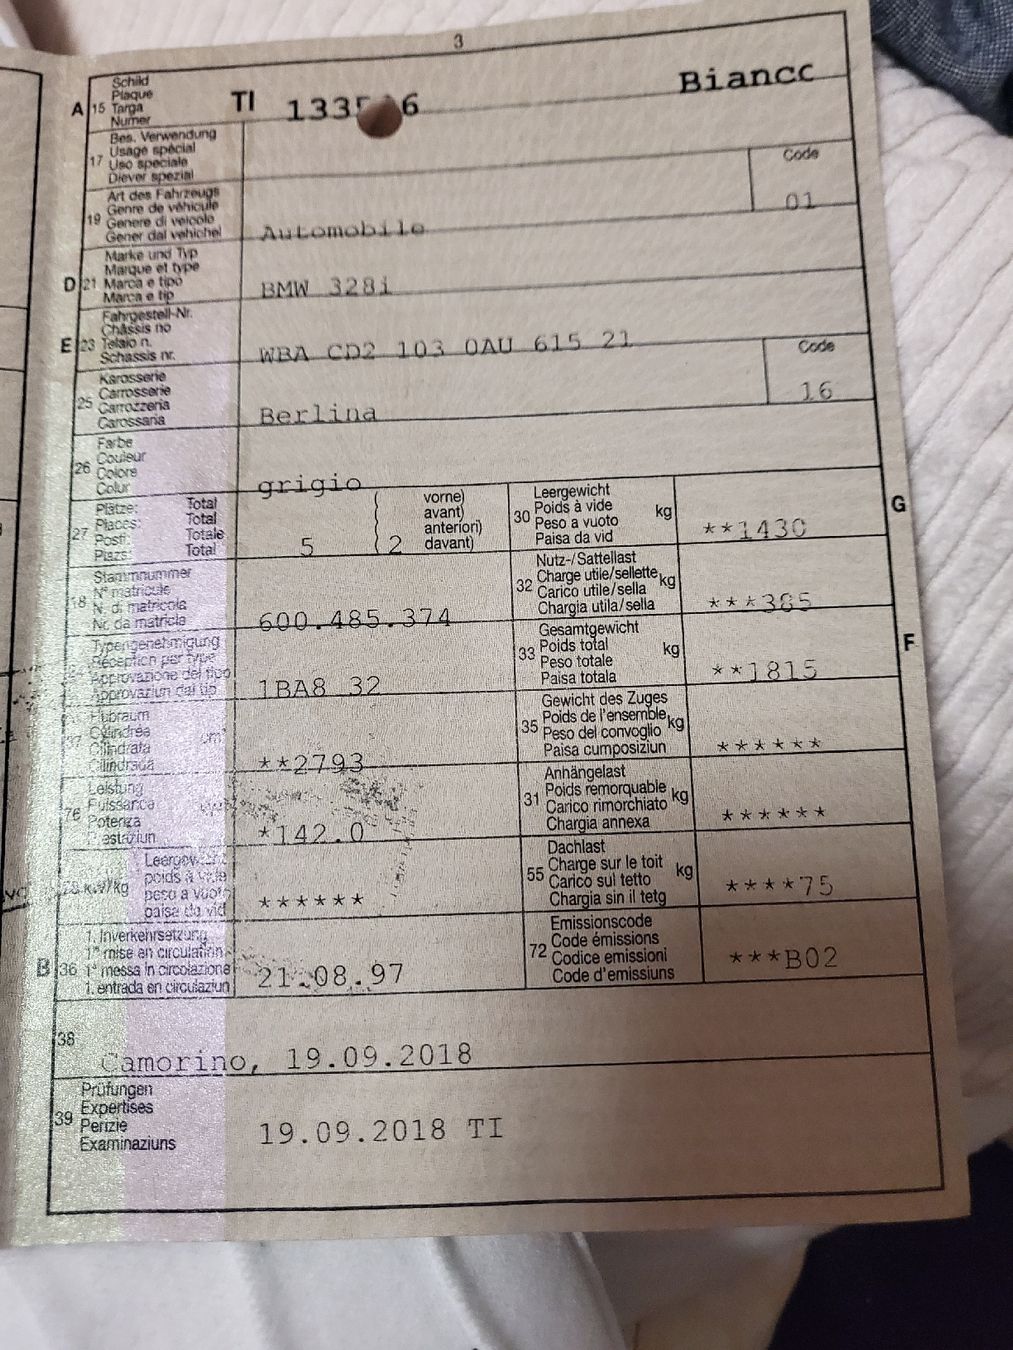 3
A 15 Schild
Plaque
Targa
Numer
TI 133 6 Biancc
17 Bes. Verwendung
Usage spécial
Uso speciale
Diever spezial
Code
19 Art des Fahrzeugs
Genre de véhicule
Genere di veicolo
Gener dal vehichel
Automobile
01
D 21 Marke und Typ
Marque et type
Marca e tipo
Marca e tip
BMW 328i
E 23 Fahrgestell-Nr.
Châssis no
Telaio n.
Schassis nr.
WBA CD2 103 0AU 615 21
Code
25 Karosserie
Carrosserie
Carrozzeria
Carossaria
Berlina
16
26 Farbe
Couleur
Colore
Colur
grigio
27 Plätze: Total
Places: Total
Posti: Totale
Plazs: Total
5 2
vorne)
avant)
anteriori)
davant)
30 Leergewicht
Poids à vide
Peso a vuoto
Paisa da vid
kg
**1430
G
18 Stammnummer
N° matricule
N. di matricola
Nr. da matricla
600.485.374
32 Nutz-/Sattellast
Charge utile/sellette
Carico utile/sella
Chargia utila/sella
kg
***385
Typengenehmigung
Réception par type
Approvazione del tipo
Approvaziun dal tip
1BA8 32
33 Gesamtgewicht
Poids total
Peso totale
Paisa totala
kg
**1815
F
37 Hubraum
Cylindrée
Cilindrata
Cilindrada
cm³
**2793
35 Gewicht des Zuges
Poids de l'ensemble
Peso del convoglio
Paisa cumposiziun
kg
******
76 Leistung
Puissance
Potenza
*142.0
31 Anhängelast
Poids remorquable
Carico rimorchiato
Chargia annexa
kg
******
78 kW/kg
poids à vide
peso a vuoto
paisa da vid
******
55 Dachlast
Charge sur le toit
Carico sul tetto
Chargia sin il tetg
kg
****75
B 36 1. Inverkehrsetzung
1re mise en circulation
1a messa in circolazione
1. entrada en circulaziun
21.08.97
72 Emissionscode
Code émissions
Codice emissioni
Code d'emissiuns
***B02
38
Camorino, 19.09.2018
39 Prüfungen
Expertises
Perizie
Examinaziuns
19.09.2018 TI